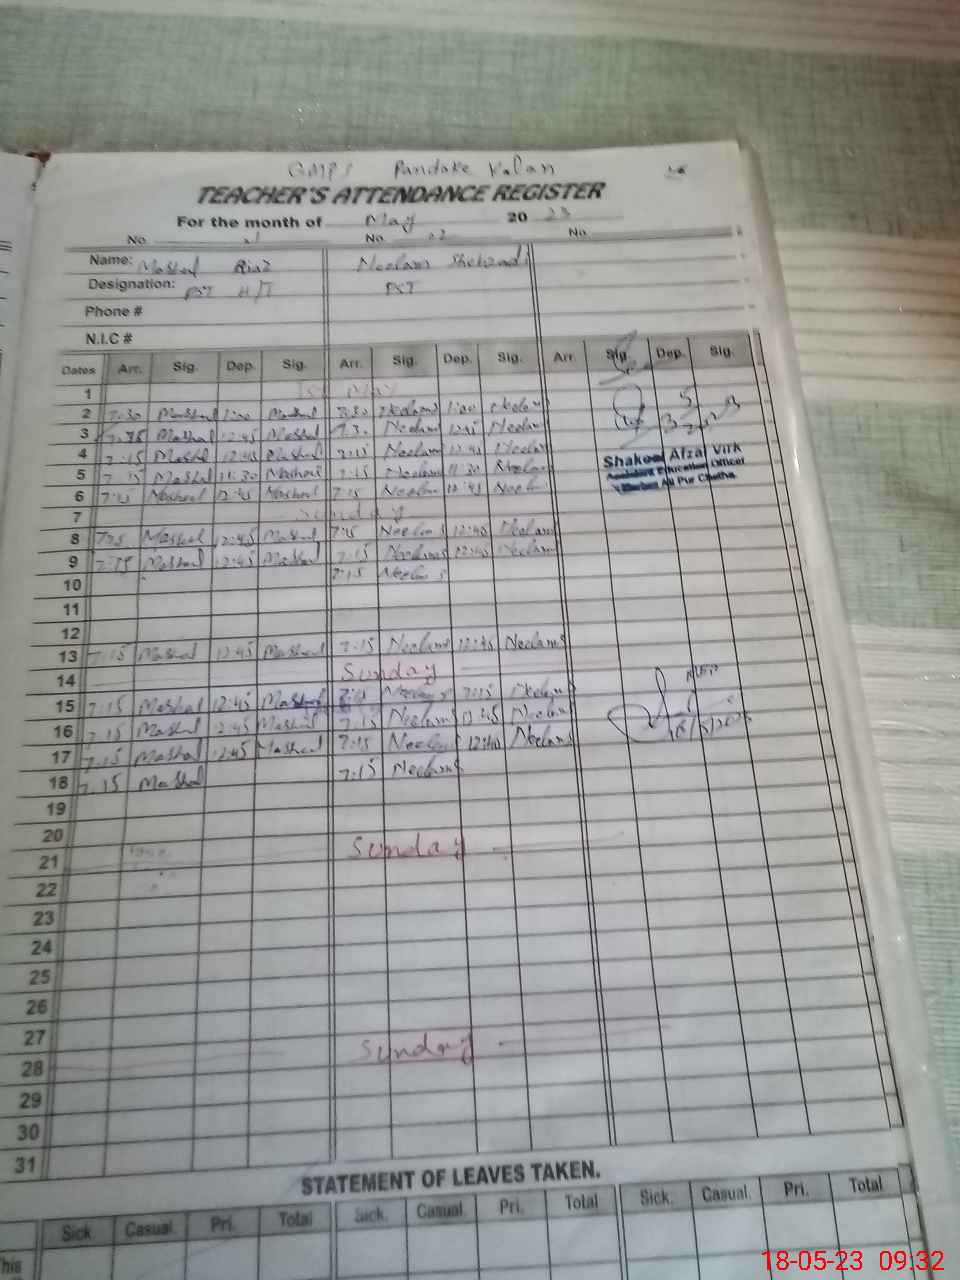 GMPS Pandoke Kalan
TEACHER'S ATTENDANCE REGISTER
For the month of May 20 23
No. 01 No. 02 No.
Name: Mashal Riaz Neelam Shehzadi
Designation: PST H/T PST
Phone #
N.I.C #
Dates Arr. Sig. Dep. Sig. Arr. Sig. Dep. Sig. Arr. Sig. Dep. Sig.
1 1st May
2 7:30 Mashal 1:00 Mashal 7:30 Neelam 1:00 Neelam
3 7:15 Mashal 12:45 Mashal 7:30 Neelam 12:45 Neelam
4 7:15 Mashal 12:45 Mashal 7:15 Neelam 12:45 Neelam
Shakeel Afzal Virk
Assistant Education Officer
Ali Pur Chatha
5 7:15 Mashal 11:30 Mashal 7:15 Neelam 11:30 Neelam
6 7:15 Mashal 12:45 Mashal 7:15 Neelam 12:45 Neelam
7 Sunday
8 7:15 Mashal 12:45 Mashal 7:15 Neelam 12:45 Neelam
9 7:15 Mashal 12:45 Mashal 7:15 Neelam 12:45 Neelam
10 7:15 Neelam
11
12
13 7:15 Mashal 12:45 Mashal 7:15 Neelam 12:45 Neelam
14 Sunday
15 7:15 Mashal 12:45 Mashal 7:15 Neelam 7:15 Neelam
16 7:15 Mashal 12:45 Mashal 7:15 Neelam 12:45 Neelam
17 7:15 Mashal 12:45 Mashal 7:15 Neelam 12:45 Neelam
18 7:15 Mashal 7:15 Neelam
19
20
21 Sunday
22
23
24
25
26
27
28 Sunday
29
30
31
STATEMENT OF LEAVES TAKEN.
Sick. Casual. Pri. Total Sick. Casual. Pri. Total Sick. Casual. Pri. Total
This
18-05-23 09:32